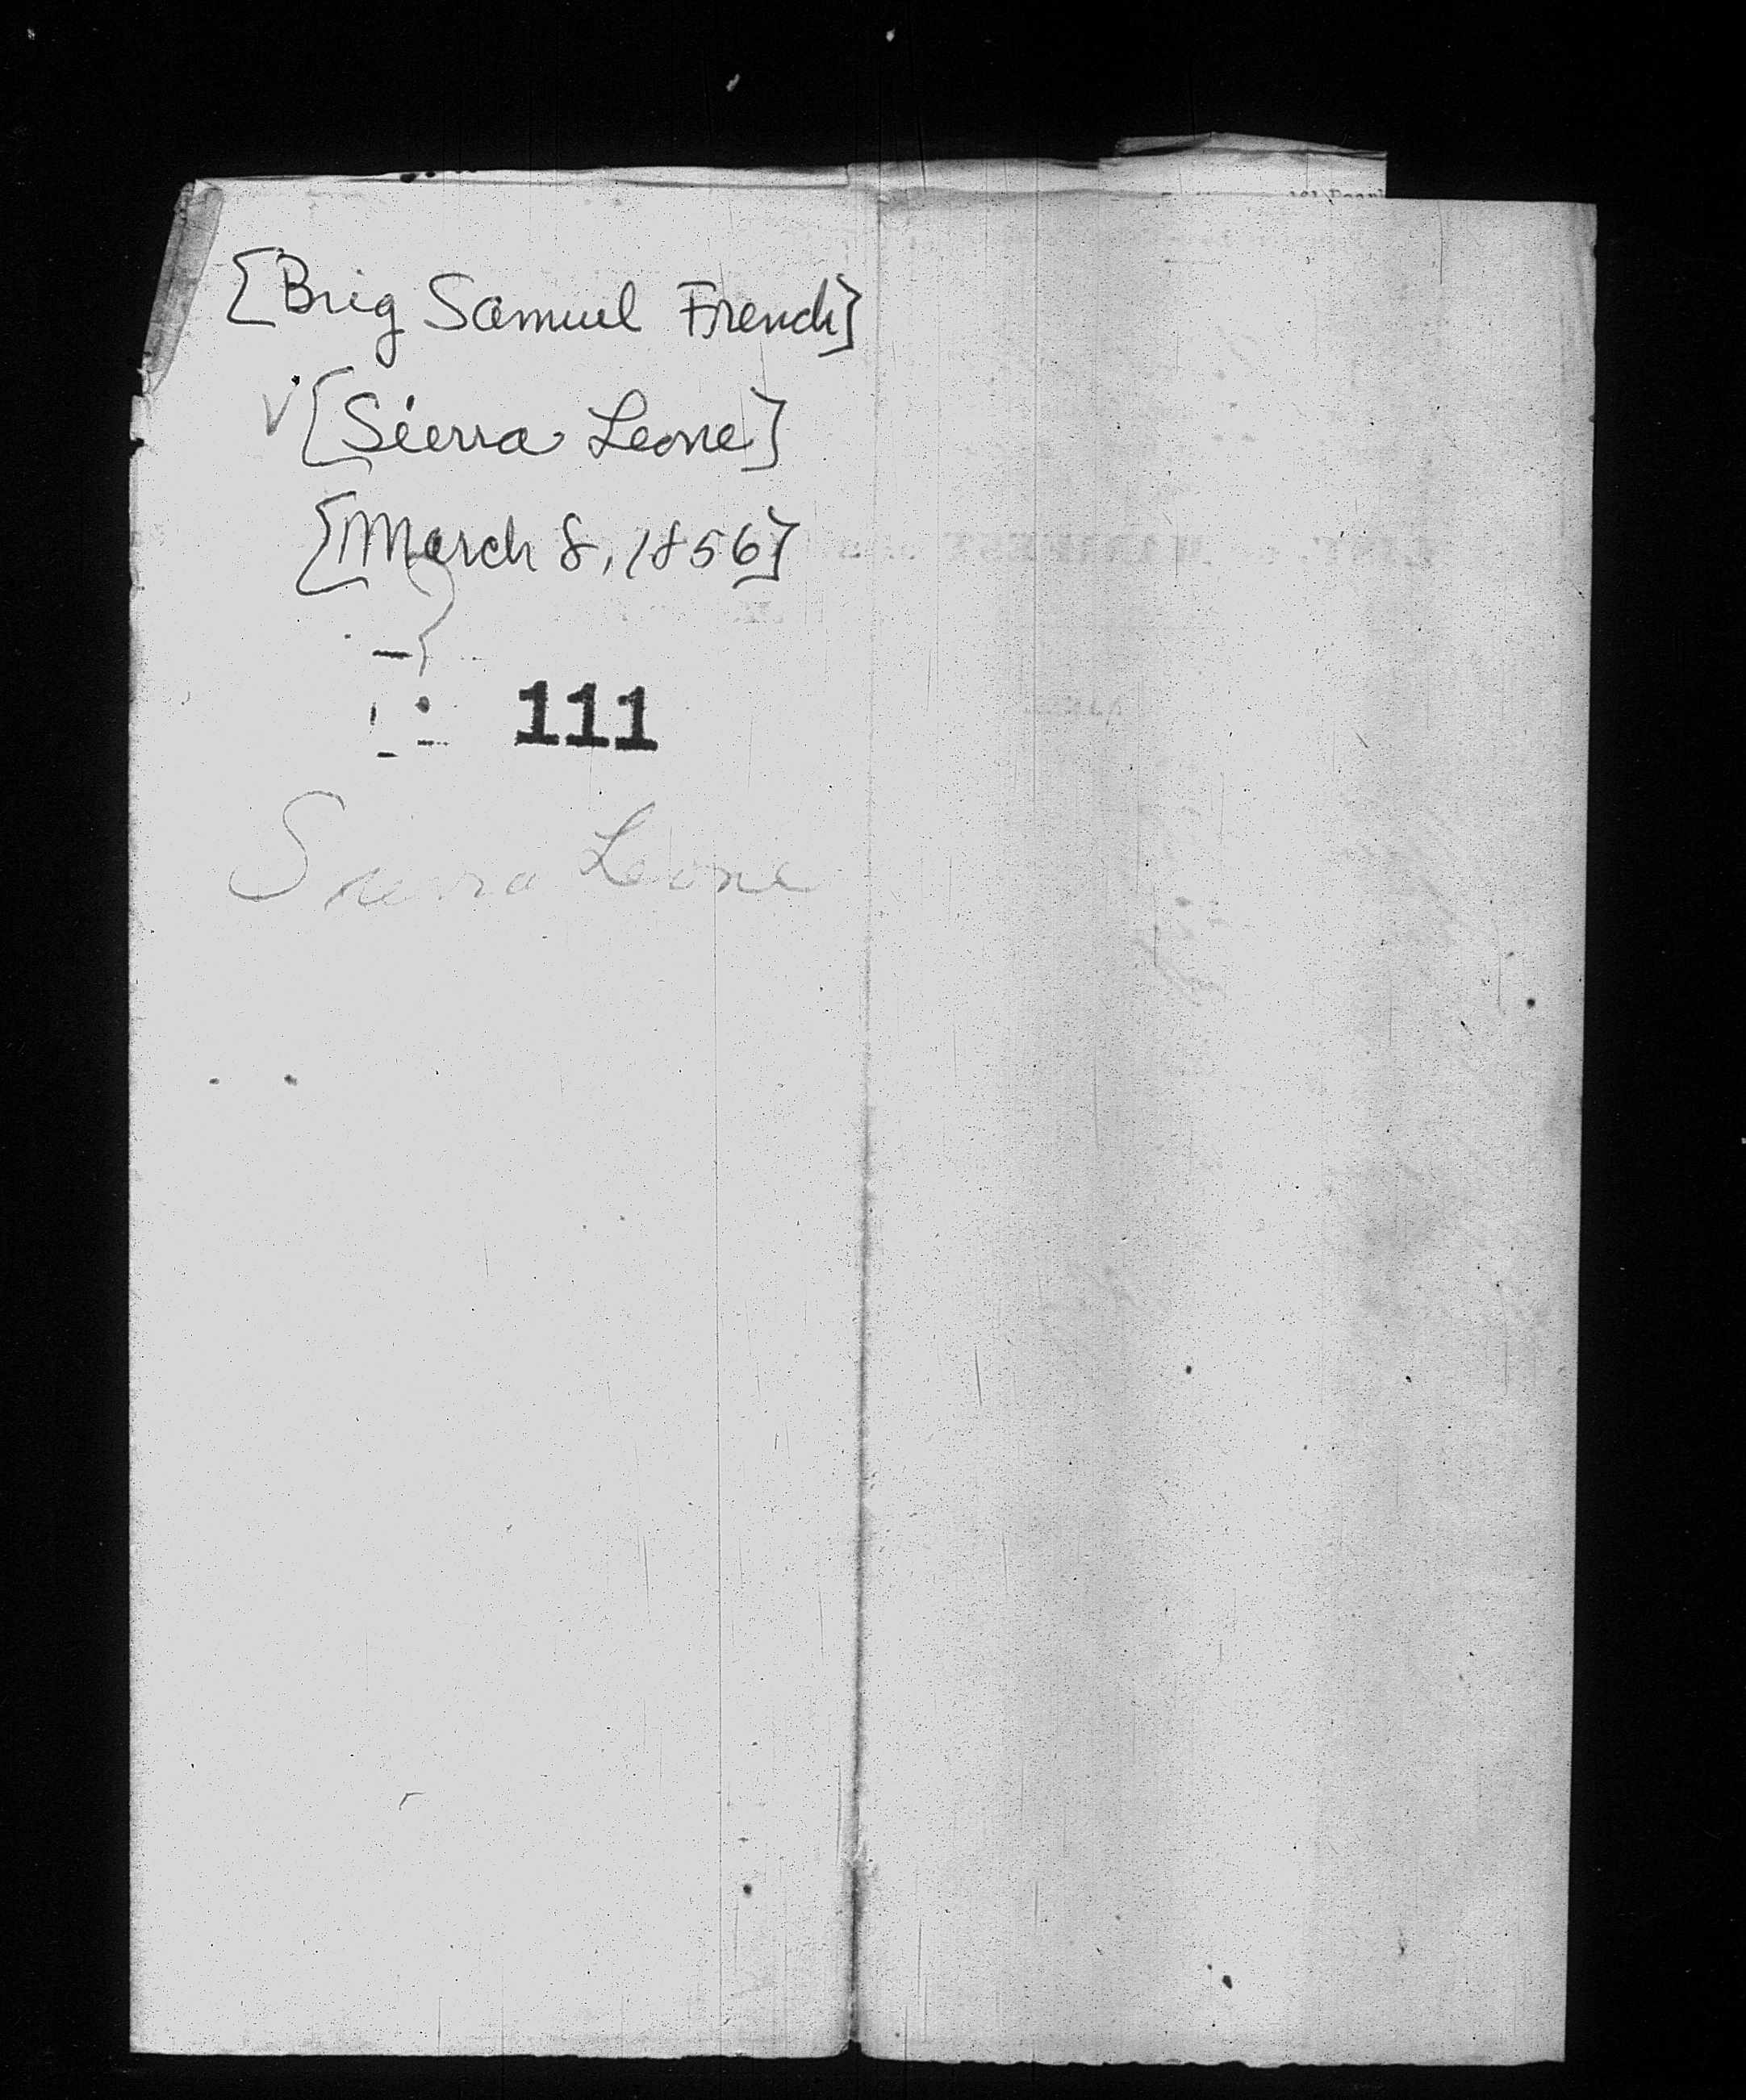 [Brig Samuel French]
[Sierra Leone]
[March 8, 1856]
111
Sierra Leone